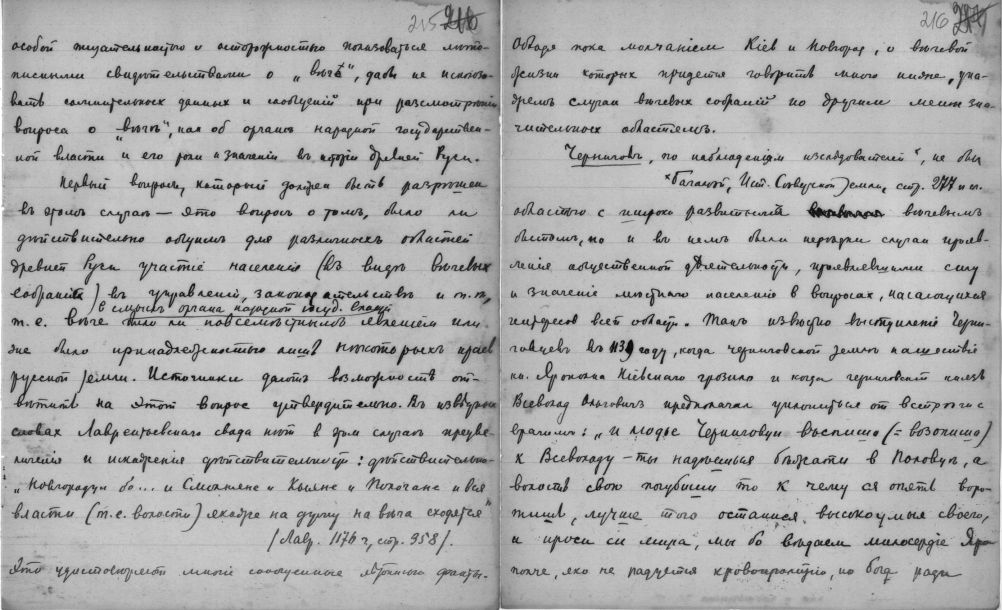 215
особой тщательностью и осторожностью пользоваться лѣто-
писными свидѣтельствами о „вѣчѣ“, дабы не использо-
вать сомнительных данных и сообщеній при разсмотрѣніи
вопроса о „вѣчѣ“, как об органѣ народной государствен-
ной власти и его роли и значеніи въ исторіи древней Руси.
Первый вопрос, который должен быть разрѣшен
въ этом случаѣ — это вопрос о том, было ли
дѣйствительно общим для различных областей
древней Руси участіе населенія (въ видѣ вѣчевых
собраній) въ управленіи, законодательствѣ и т. п.,
в смыслѣ органа народной госуд. власти
т. е. вѣче было ли повсемѣстным явленіем или
же было принадлежностью лишь нѣкоторых краев
русской земли. Источники дают возможность от-
вѣтить на этот вопрос утвердительно. Въ извѣстных
словах Лаврентьевскаго свода нѣт в этом случаѣ преуве-
личенія и искаженія дѣйствительности: дѣйствительно
„Новгородци бо... и Смолняне и Кыяне и Полочане и вся
власти (т. е. волости) якоже на думу на вѣча сходятся“
/Лавр. 1176 г., стр. 358/.
Это удостовѣряют многіе сообщенные лѣтописью факты.
216
Обходя пока молчаніем Кіев и Новгород, о вѣчевой
жизни которых придется говорить много ниже, ука-
жем случаи вѣчевых собраній по другим менѣе зна-
чительным областям.
Чернигов, по наблюденіям изслѣдователей*, не был
*Багалѣй, Ист. Сѣверской земли, стр. 277 и сл.
областью с широко развитым вѣчевым
бытом, но и в нем были нерѣдки случаи прояв-
ленія общественной дѣятельности, проявлявшими силу
и значеніе мѣстнаго населенія в вопросах, касающихся
интересов всей области. Так извѣстно выступленіе Черни-
говцев въ 1139 году, когда черниговской землѣ нашествіе
кн. Ярополка Кіевскаго грозило и когда черниговскій князь
Всеволод Ольгович предполагал уклониться от встрѣчи с
врагами: „и людье Черниговци въспиша (= возопиша)
к Всеволоду — ты надѣешися бѣжати в Половцѣ, а
волость свою погубиши то к чему ся опять воро-
тишь, лучше того останися высокоумья своего,
и проси си мира, мы бо вѣдаем милосердіе Яро-
полче, яко не радуется кровопролитію, но бога ради